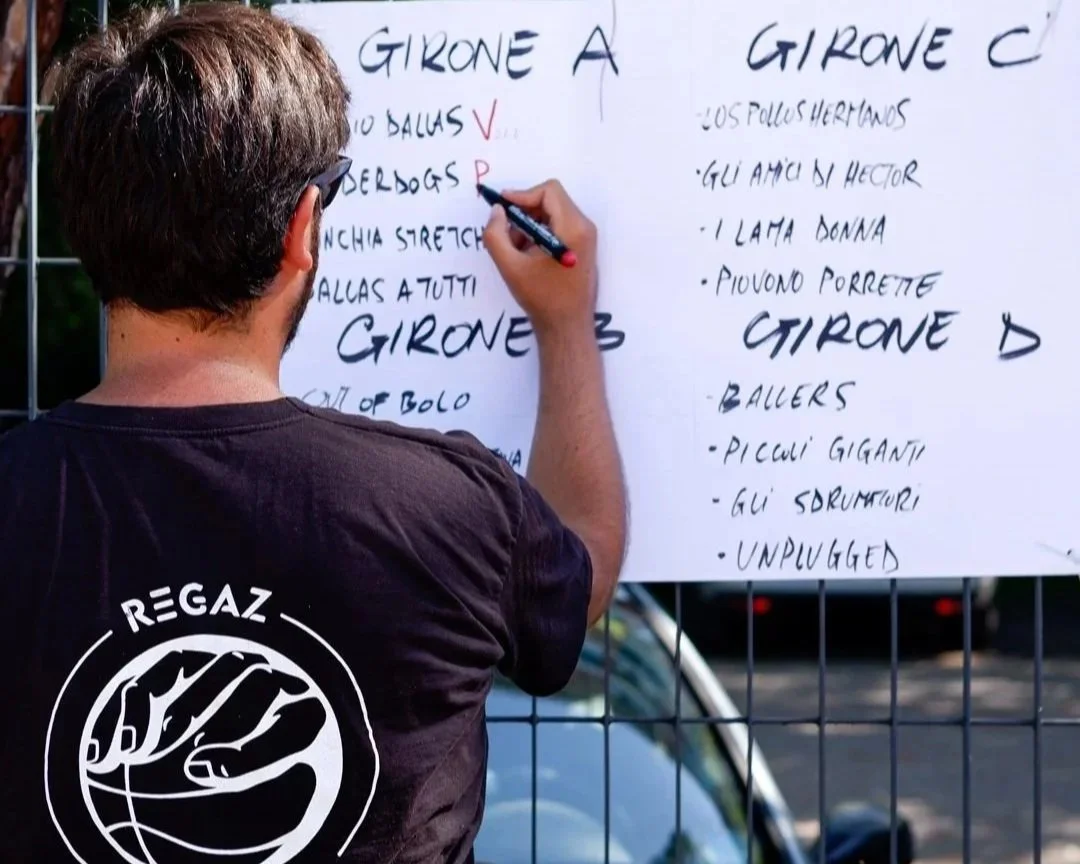 GIRONE A
IO DALLAS V
DERDOGS P
NCHIA STRETCH
ALLAS A TUTTI
GIRONE B
OUT OF BOLO
GIRONE C
·LOS POLLOS HERMANOS
·GLI AMICI DI HECTOR
·I LAMA DONNA
·PIOVONO PORRETTE
GIRONE D
·BALLERS
·PICCOLI GIGANTI
·GLI SDRUMATURI
·UNPLUGGED
REGAZ